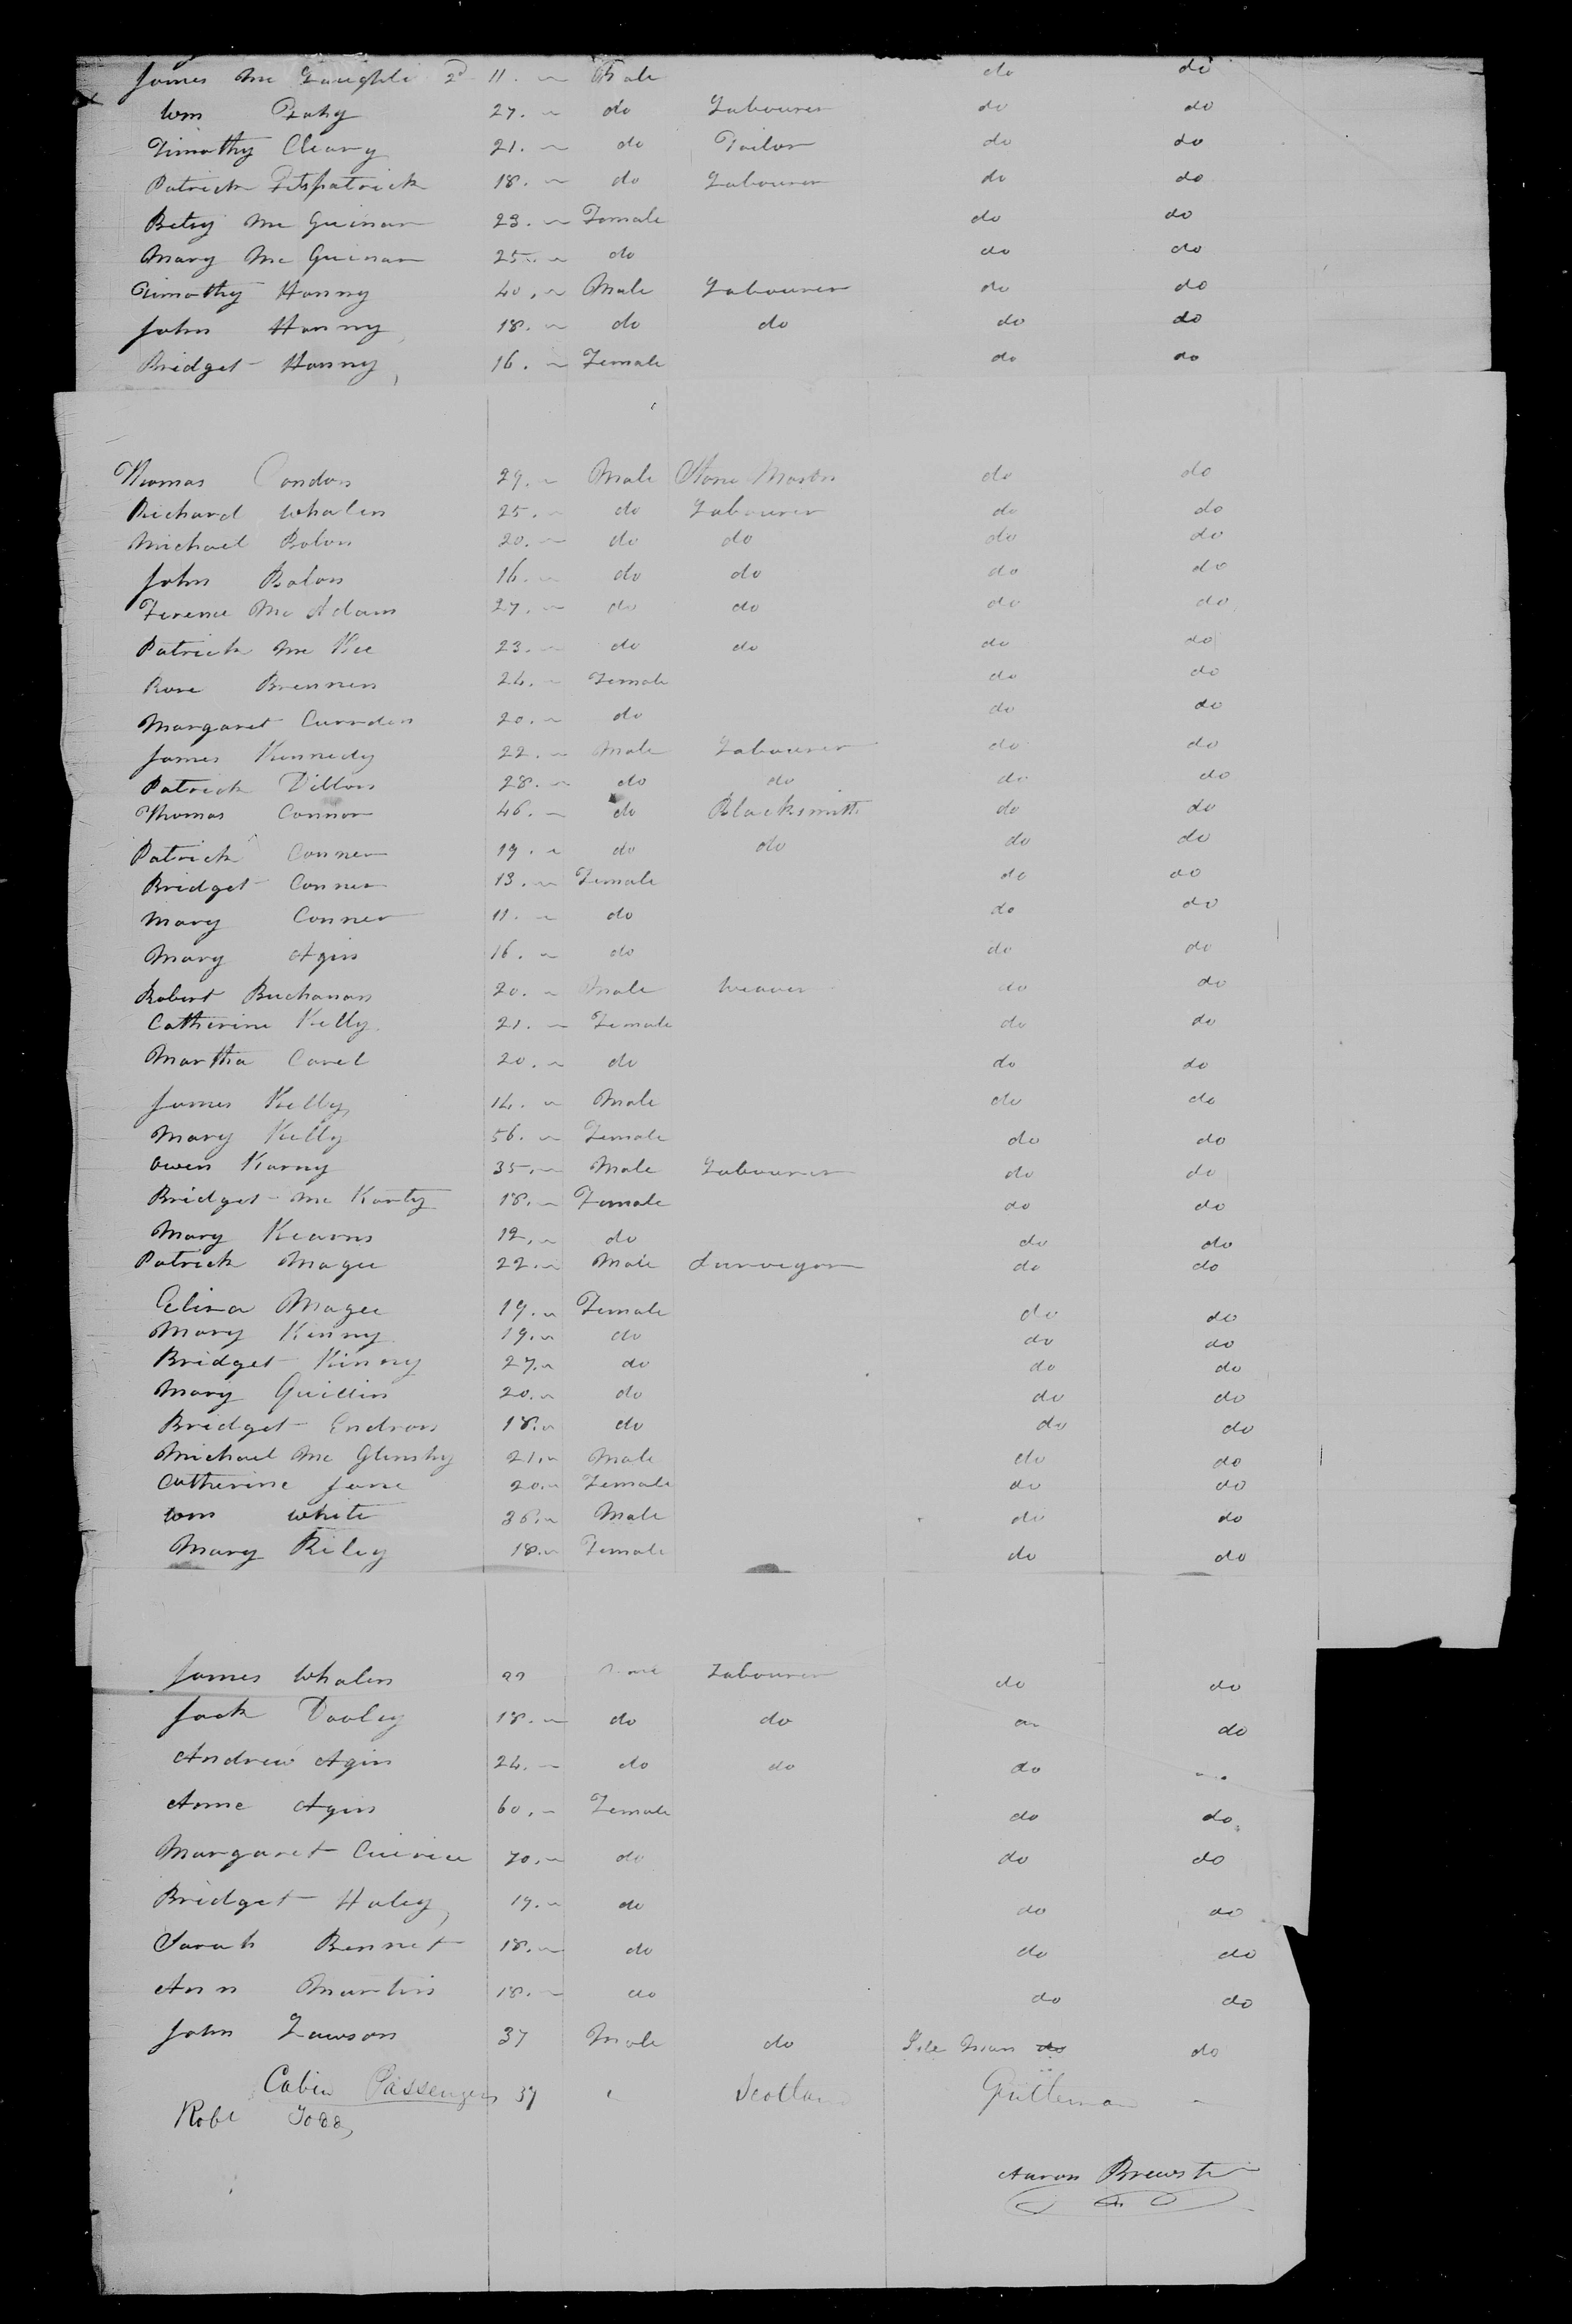 James Mc Laughli 2d 11. Male do do
Wm 27. do Labourer do do
Timothy Cleary 21. do Tailor do do
Patrick Fitspatrick 18. do Labourer do do
Betsy Mc Guinan 23. Female do do
Mary Mc Guinan 25. do do do
Timothy Hanny 40. Male Labourer do do
John Hanny 18. do do do do
Bridget Hanny 16. Female do do
Thomas Condon 29. Male Stone Mason do do
Richard Whalen 25. do Labourer do do
Michael Bolon 20. do do do do
John Bolon 16. do do do do
Terence Mc Adam 27. do do do do
Patrick Mc Kee 23. do do do do
Rose Brennen 24. Female do do
Margaret 20. do do do
James Kennedy 22. Male Labourer do do
Patrick Dillon 28. do do do do
Thomas Connor 46. do Blacksmith do do
Patrick Conner 19. do do do do
Bridget Conner 13. Female do do
Mary Conner 11. do do do
Mary Agin 16. do do do
Robert Buchanan 20. Male Weaver do do
Catherine Kelly 21. Female do do
Martha Carel 20. do do do
James Kelly 14. Male do do
Mary Kelly 56. Female do do
Owen Karny 35. Male Labourer do do
Bridget Mc Karty 18. Female do do
Mary Kearns 12. do do do
Patrick Magee 22. Male Surveyor do do
Elisa Magee 19. Female do do
Mary Kinny 19. do do do
Bridget Kinny 27. do do do
Mary Quillin 20. do do do
Bridget Endron 18. do do do
Michael Mc Glinshy 21. Male do do
Catherine Jane 20. Female do do
Wm White 36. Male do do
Mary Riley 18. Female do do
James Whalen Labourer do do
Jack Dooley 18. do do do
Andrew Agin 24. do do do
Anne Agin 60. Female do do
Margaret 70. do do do
Bridget Haley 19. do do do
Sarah Bennet 18. do do do
Ann Martin 18. do do do
John Lawson 37 Male do Isle Man do do
Cabin Passengers 37 Scotland Gentleman
Robt Todd
Aaron Brewster